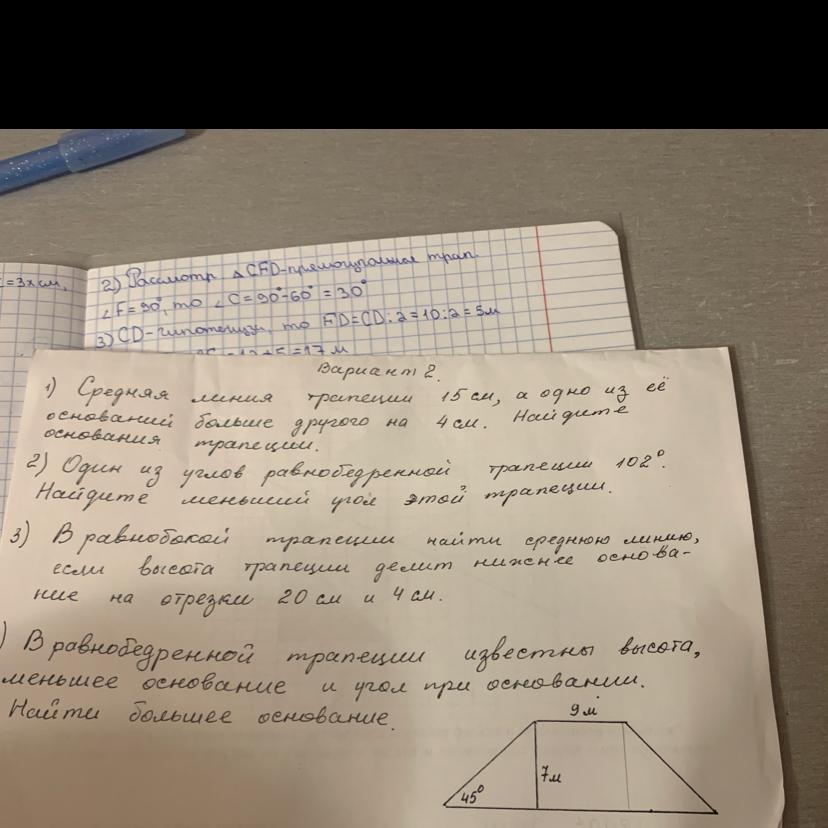 =3х см,
2) Рассмотр △CFD-прямоугольная трап.
∠F=90°, то ∠C=90°-60°=30°
3) CD-гипотенузы, то FD=CD:2=10:2=5м
=17 м
Вариант 2.
1) Средняя линия трапеции 15 см, а одно из её
оснований больше другого на 4 см. Найдите
основания трапеции.
2) Один из углов равнобедренной трапеции 102°.
Найдите меньший угол этой трапеции.
3) В равнобокой трапеции найти среднюю линию,
если высота трапеции делит нижнее основа-
ние на отрезки 20 см и 4 см.
) В равнобедренной трапеции известны высота,
меньшее основание и угол при основании.
Найти большее основание.
9 м
7м
45°